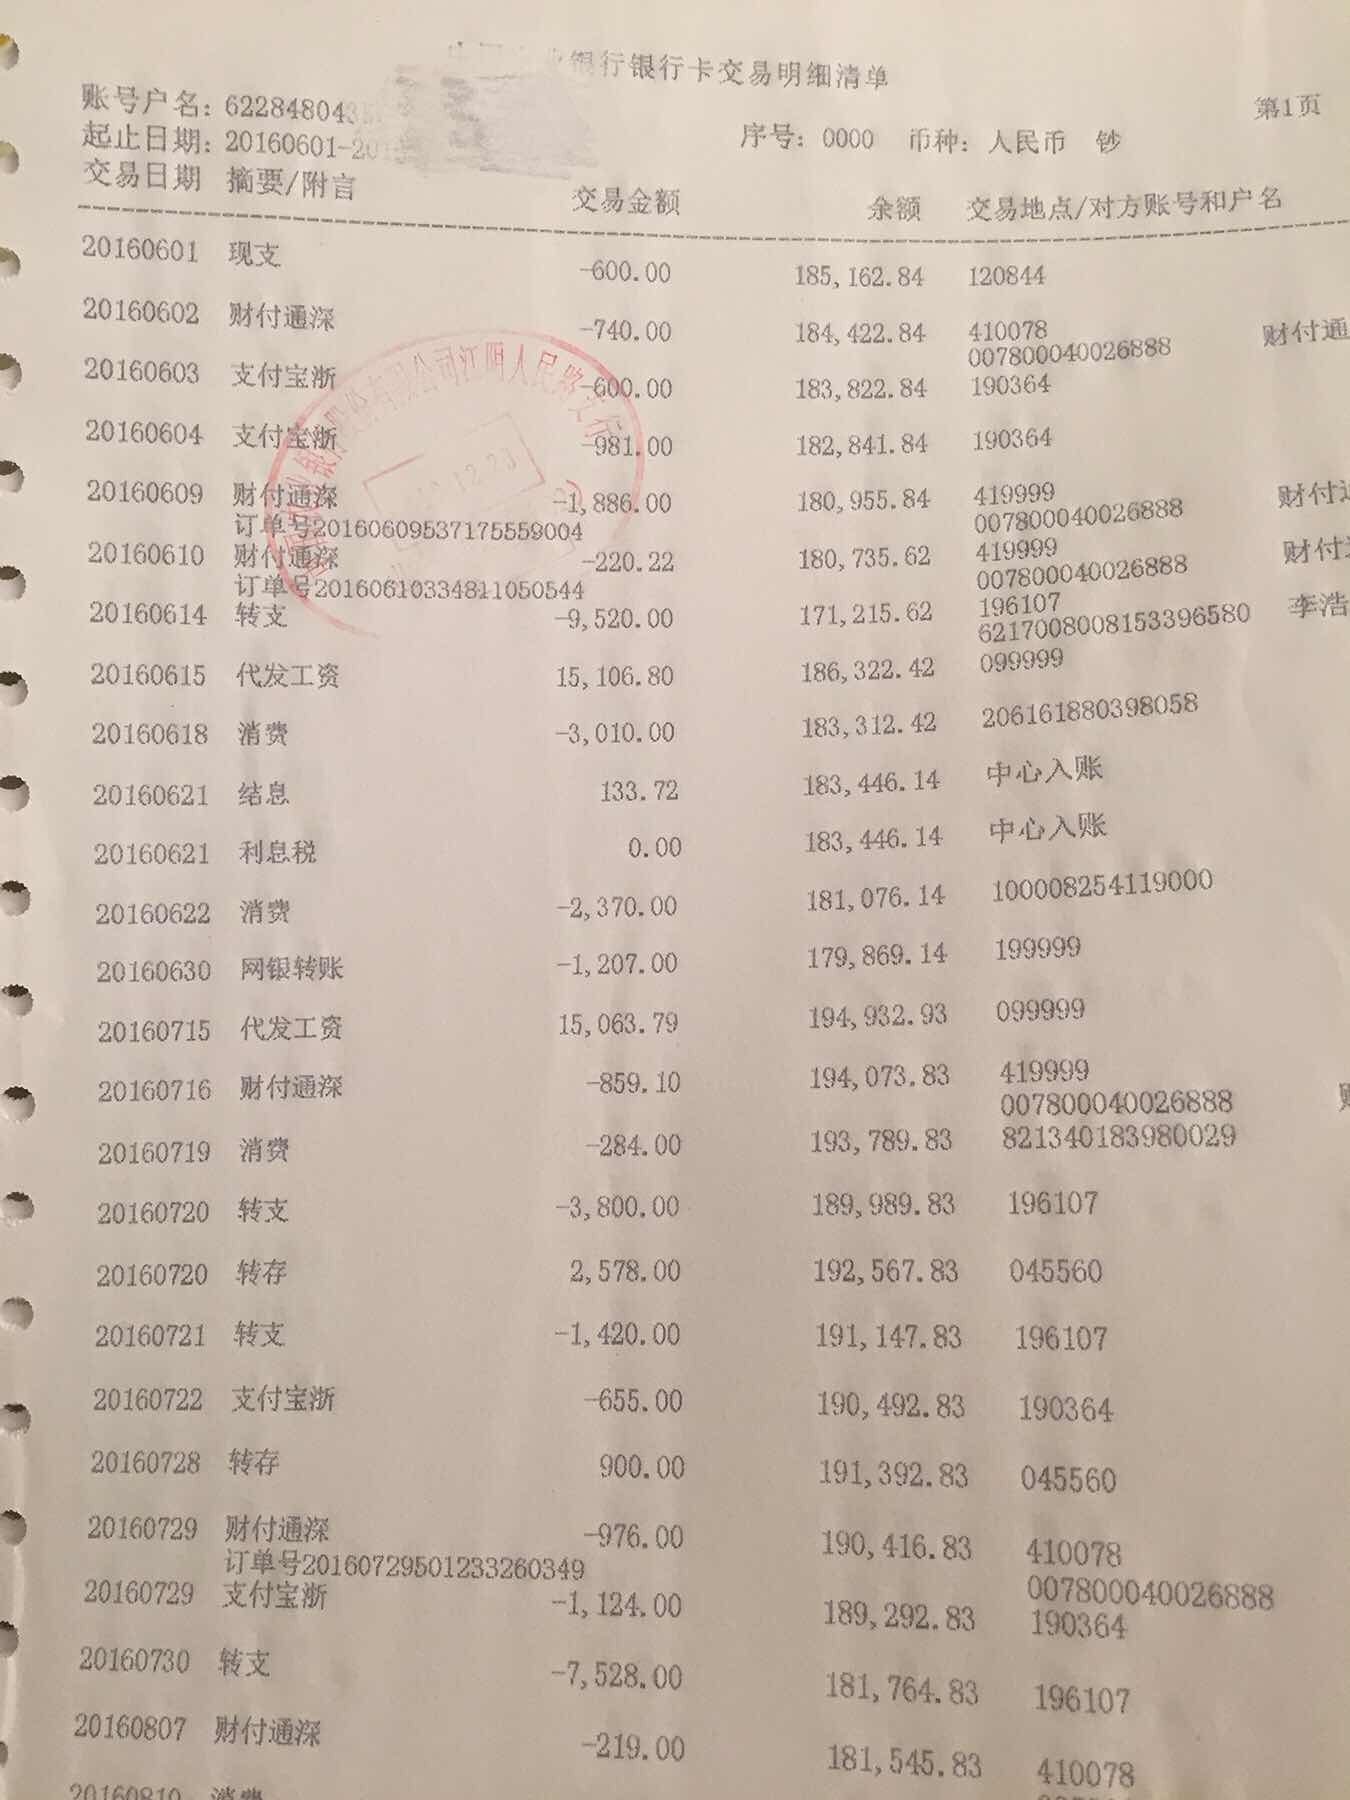 银行银行卡交易明细清单
第1页
账号户名：622848043
起止日期：20160601-20 序号：0000 币种：人民币 钞
交易日期 摘要/附言 交易金额 余额 交易地点/对方账号和户名
20160601 现支 -600.00 185,162.84 120844
20160602 财付通深 -740.00 184,422.84 410078 财付通
007800040026888
20160603 支付宝浙 -600.00 183,822.84 190364
20160604 支付宝浙 -981.00 182,841.84 190364
20160609 财付通深 -1,886.00 180,955.84 419999 财付
订单号20160609537175559004 007800040026888
20160610 财付通深 -220.22 180,735.62 419999 财付
订单号20160610334811050544 007800040026888
20160614 转支 -9,520.00 171,215.62 196107 李浩
6217008008153396580
20160615 代发工资 15,106.80 186,322.42 099999
20160618 消费 -3,010.00 183,312.42 206161880398058
20160621 结息 133.72 183,446.14 中心入账
20160621 利息税 0.00 183,446.14 中心入账
20160622 消费 -2,370.00 181,076.14 100008254119000
20160630 网银转账 -1,207.00 179,869.14 199999
20160715 代发工资 15,063.79 194,932.93 099999
20160716 财付通深 -859.10 194,073.83 419999
007800040026888
20160719 消费 -284.00 193,789.83 821340183980029
20160720 转支 -3,800.00 189,989.83 196107
20160720 转存 2,578.00 192,567.83 045560
20160721 转支 -1,420.00 191,147.83 196107
20160722 支付宝浙 -655.00 190,492.83 190364
20160728 转存 900.00 191,392.83 045560
20160729 财付通深 -976.00 190,416.83 410078
订单号20160729501233260349 007800040026888
20160729 支付宝浙 -1,124.00 189,292.83 190364
20160730 转支 -7,528.00 181,764.83 196107
20160807 财付通深 -219.00 181,545.83 410078
20160810 消费
公司江阴人民路支行